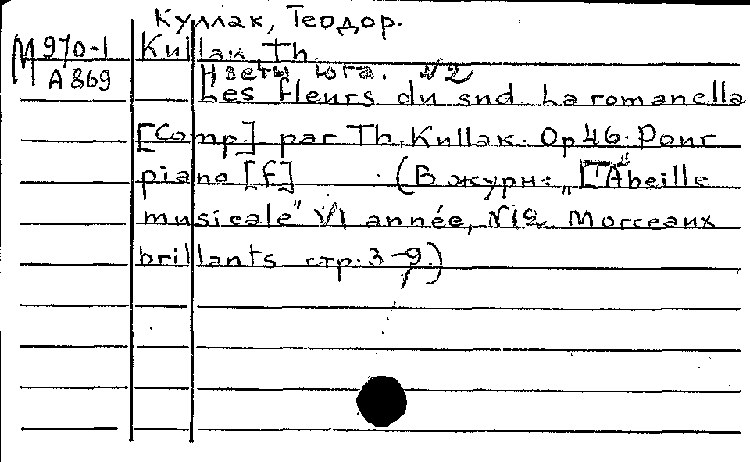 Куллак, Теодор.
М 970-1
А 869
Kullak Th.
Цветы юга. №2
Les fleurs du sud La romanella
[Comp] par Th. Kullak. Op 46. Pour
piano [f] (В журн: „L'Abeille
musicale" VI année, №12 Morceaux
brillants стр. 3-9.)